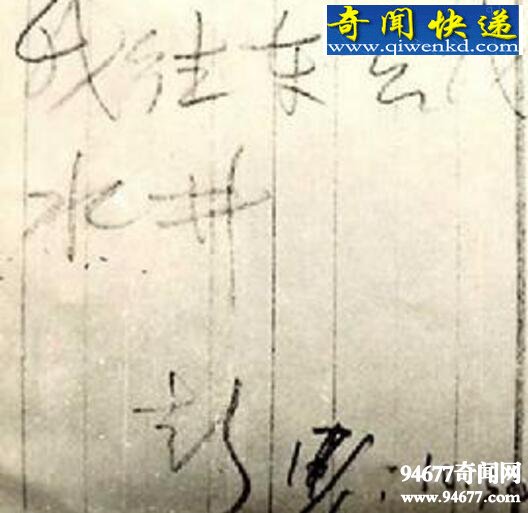 奇闻快递
www.qiwenkd.com
我往东去
水井
彭
94677奇闻网
www.94677.com